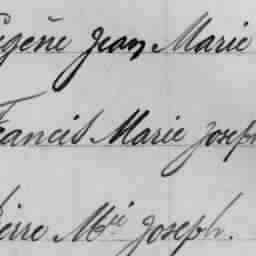 Eugène Jean Marie
Francis Marie Joseph
Pierre Mie Joseph.